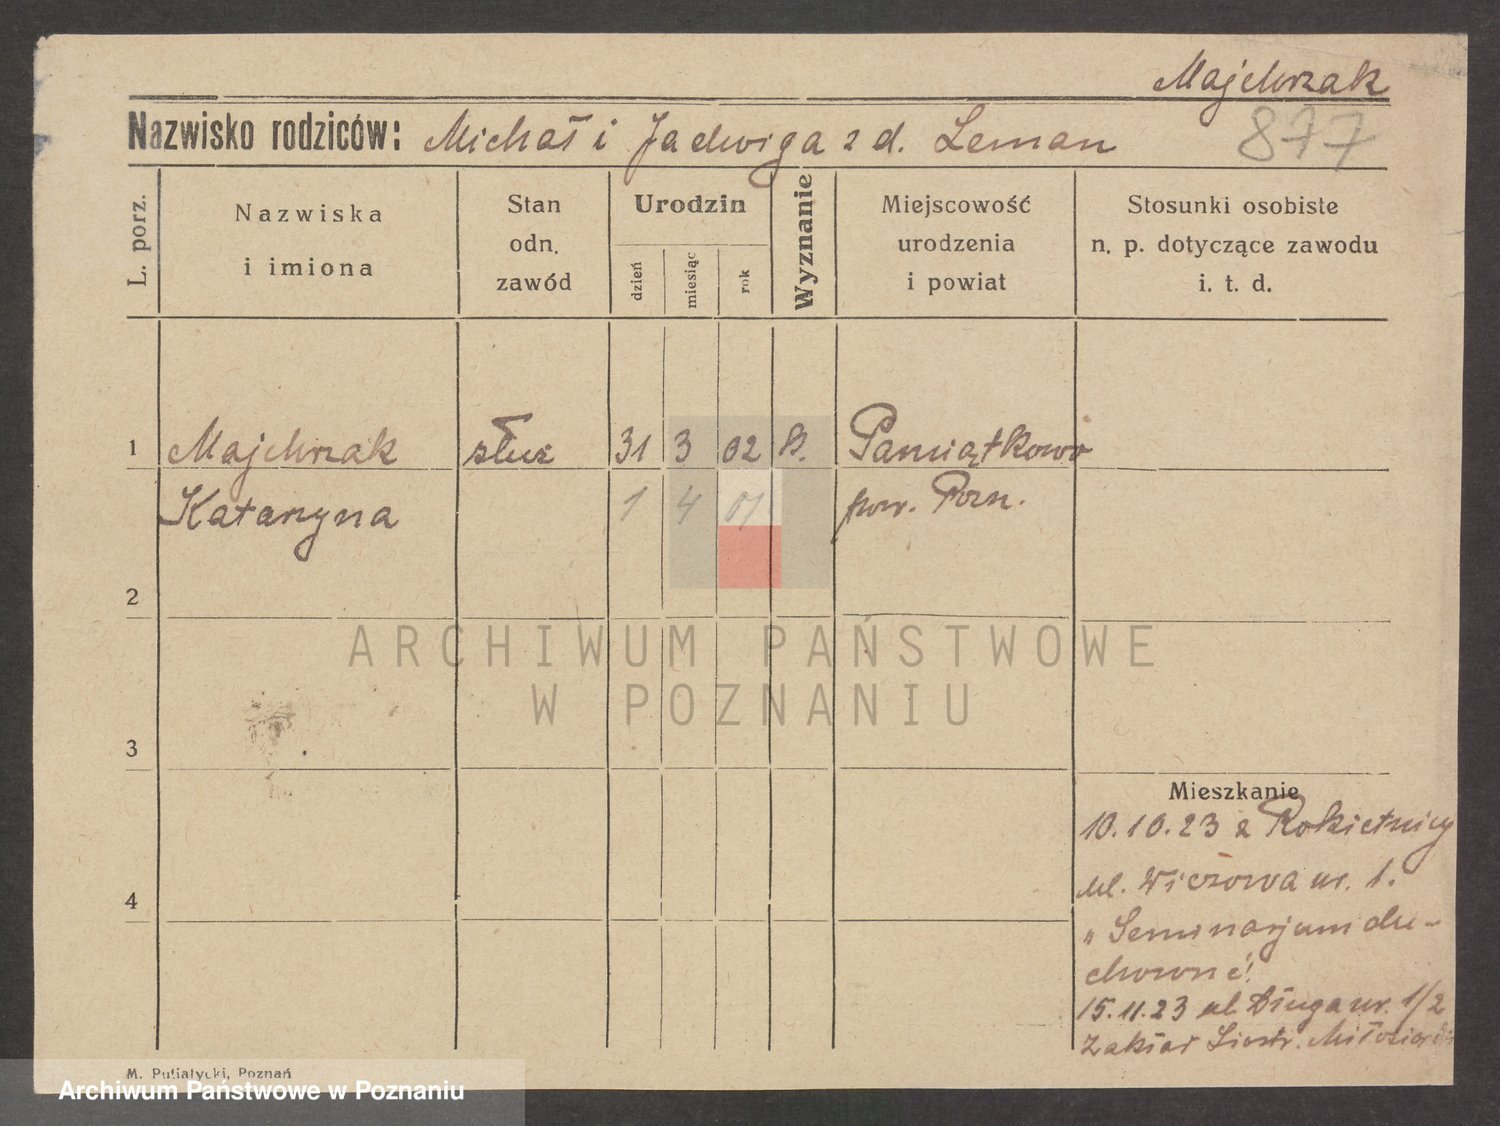 Majchrzak
Nazwisko rodziców: Michał i Jadwiga z d. Leman 877
L. porz.
Nazwiska
i imiona
Stan
odn.
zawód
Urodzin
dzień
miesiąc
rok
Wyznanie
Miejscowość
urodzenia
i powiat
Stosunki osobiste
n. p. dotyczące zawodu
i. t. d.
1 Majchrzak służ 31 3 02 Pamiątkowo
Katarzyna 1 4 01 pow. Pozn.
2
3
4
ARCHIWUM PAŃSTWOWE
W POZNANIU
Mieszkanie
10.10.23 z Rokietnicy
ul. Wieżowa nr. 1.
„Seminarjum du-
chowne"
15.11.23 ul Długa nr. 1/2
Zakład Siostr. Miłosierdz
M. Putiatycki, Poznań
Archiwum Państwowe w Poznaniu